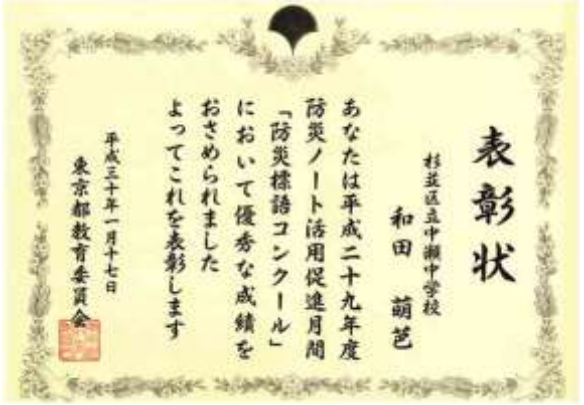 表彰状
杉並区立中瀬中学校
和田 萌芭
あなたは平成二十九年度
防災ノート活用促進月間
「防災標語コンクール」
において優秀な成績を
おさめられました
よってこれを表彰します
平成三十年一月十七日
東京都教育委員会